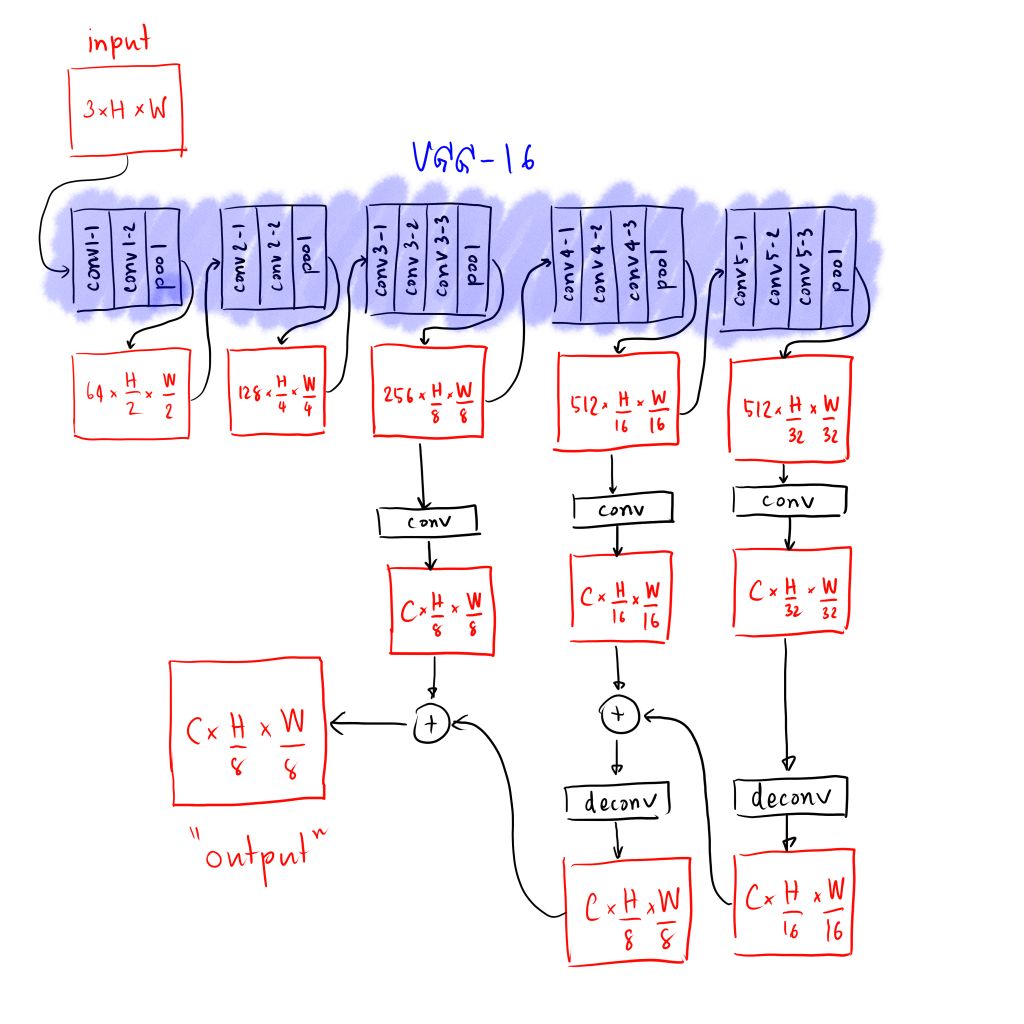 input
3×H×W
VGG-16
conv1-1
conv1-2
pool
conv2-1
conv2-2
pool
conv3-1
conv3-2
conv3-3
pool
conv4-1
conv4-2
conv4-3
pool
conv5-1
conv5-2
conv5-3
pool
64×H/2×W/2
128×H/4×W/4
256×H/8×W/8
512×H/16×W/16
512×H/32×W/32
conv
conv
conv
C×H/8×W/8
C×H/16×W/16
C×H/32×W/32
+
+
C×H/8×W/8
"output"
deconv
deconv
C×H/8×W/8
C×H/16×W/16